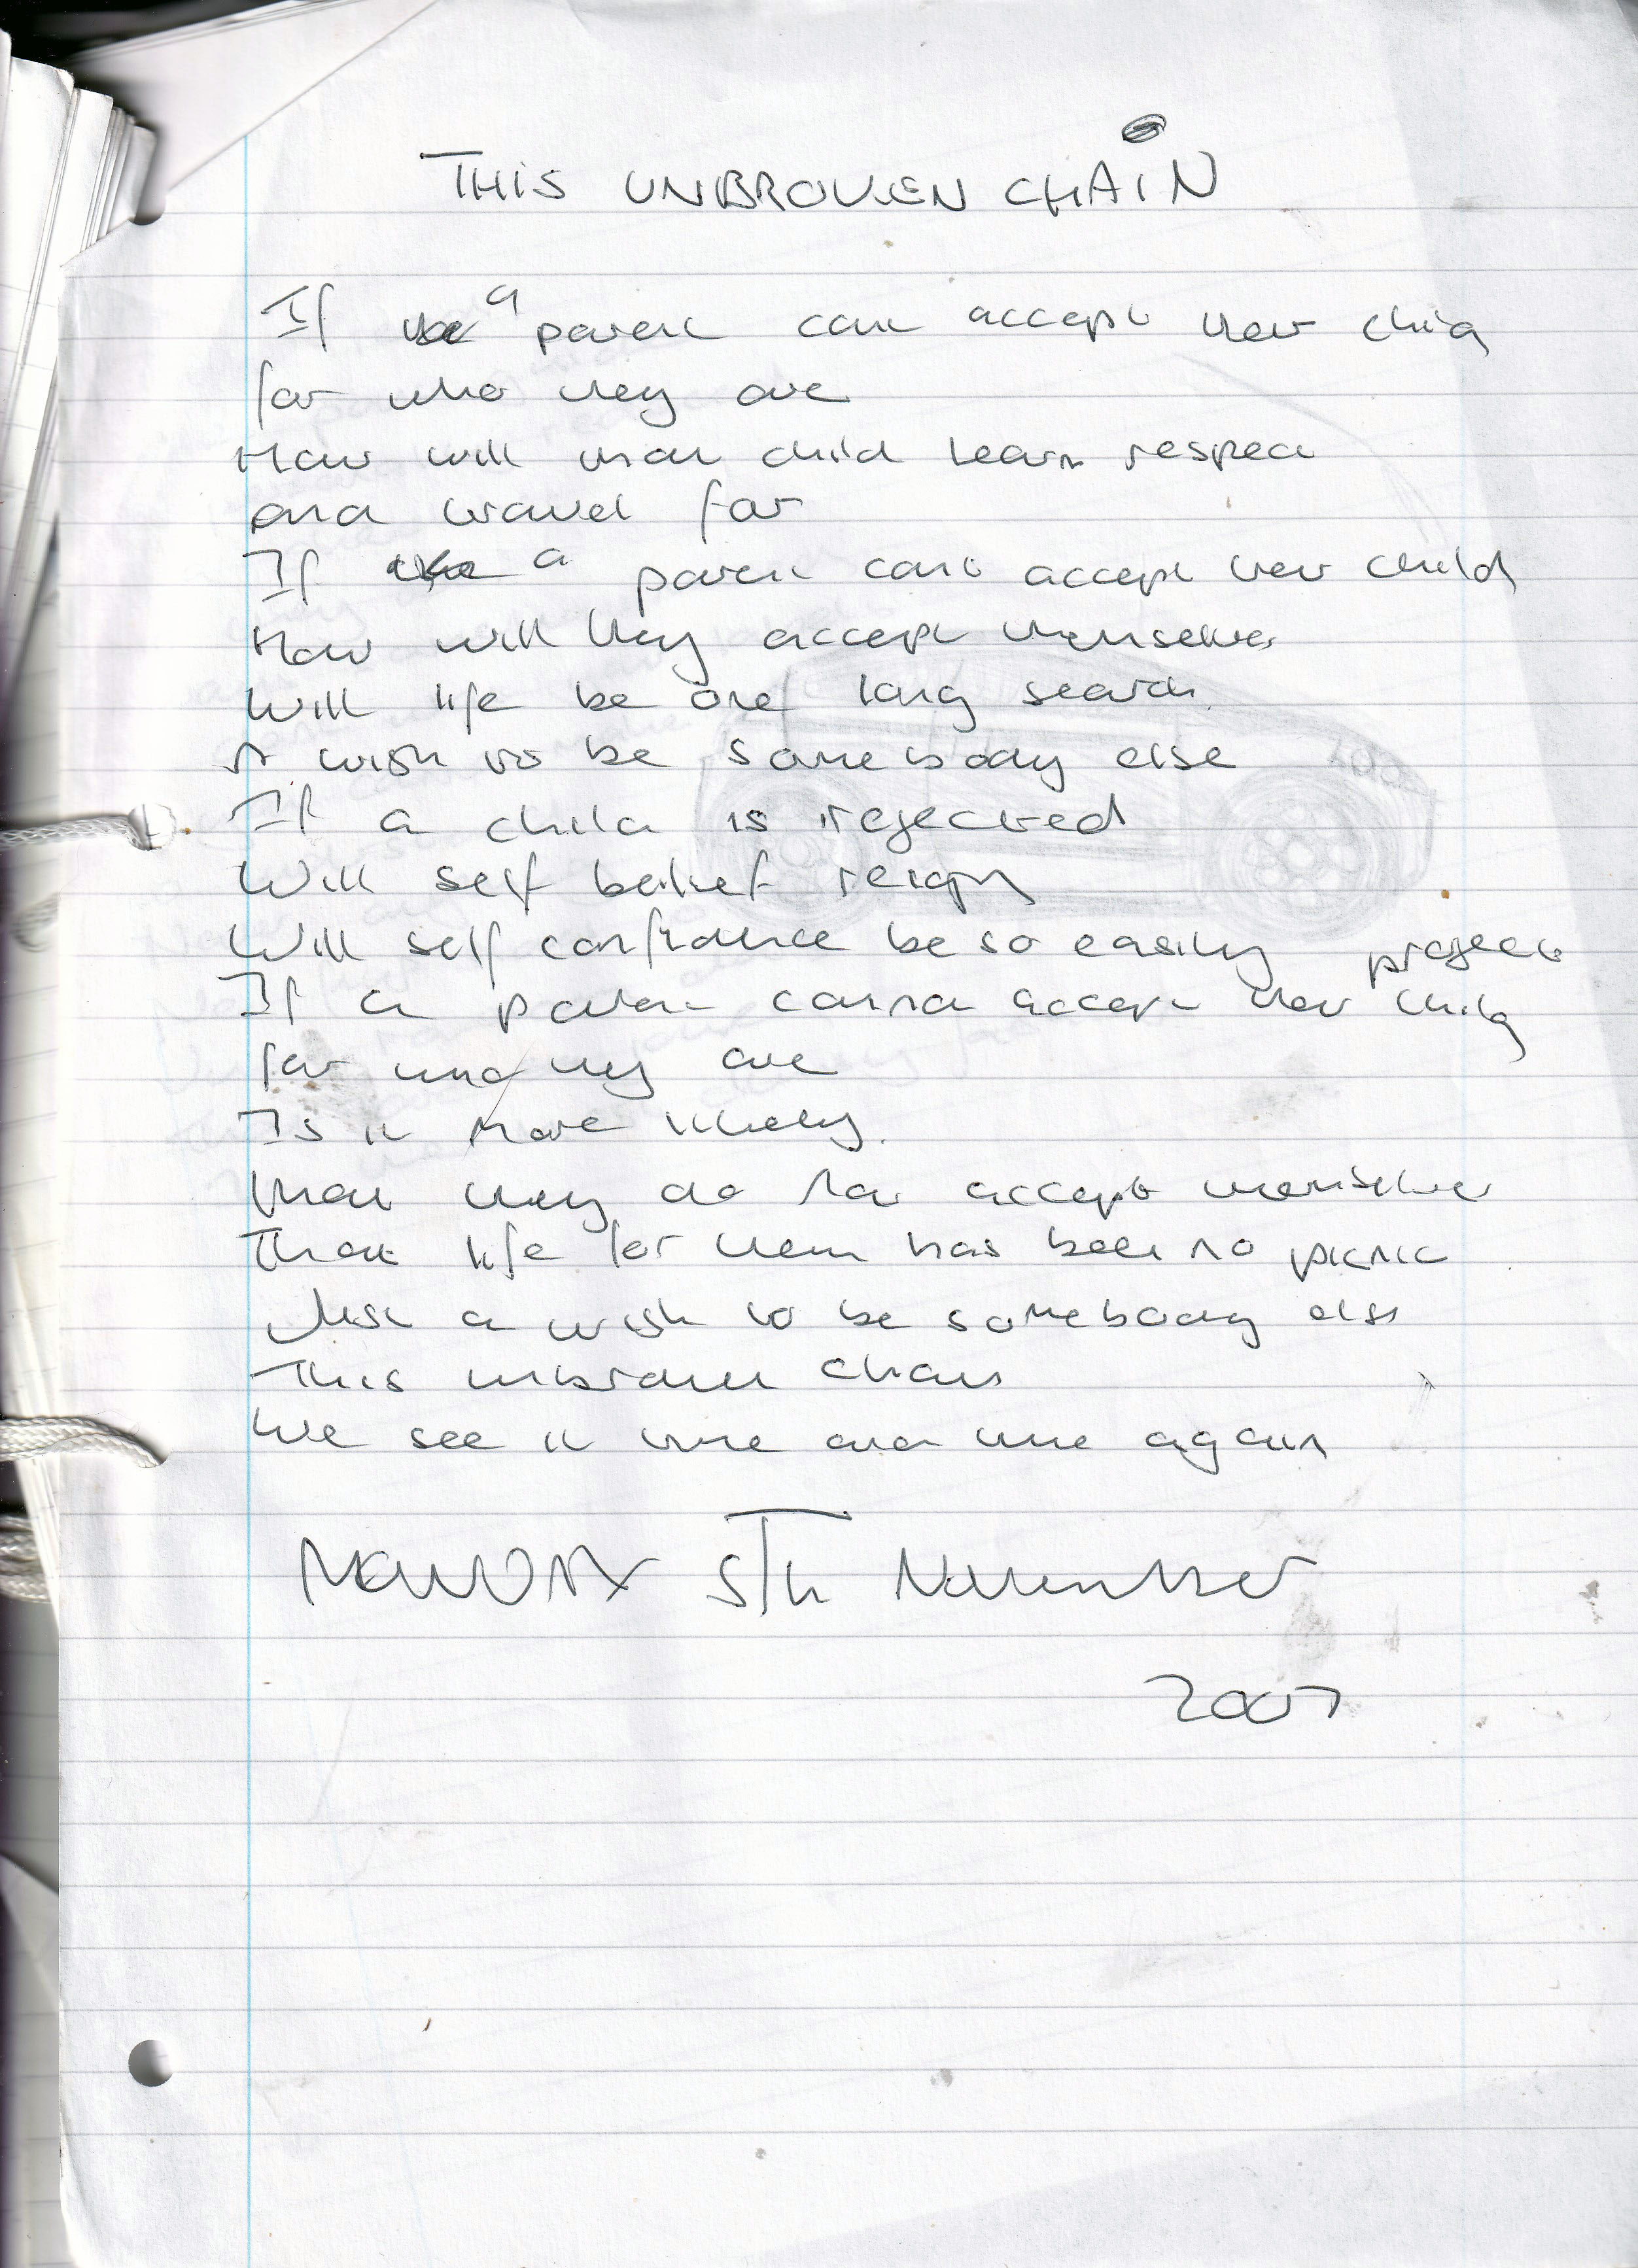 THIS UNBROKEN CHAIN
If a parent cant accept their child
for who they are
How will that child learn respect
and travel far
If a parent cant accept their child
How will they accept themselves
Will life be one long search
A wish to be somebody else
If a child is rejected
Will self belief reign
Will self confidence be so easily project
If a parent cannot accept their child
for who they are
Is it more likely
that they do not accept themselves
That life for them has been no picnic
Just a wish to be somebody else
This unbroken chain
We see it time and time again
5th November
2007